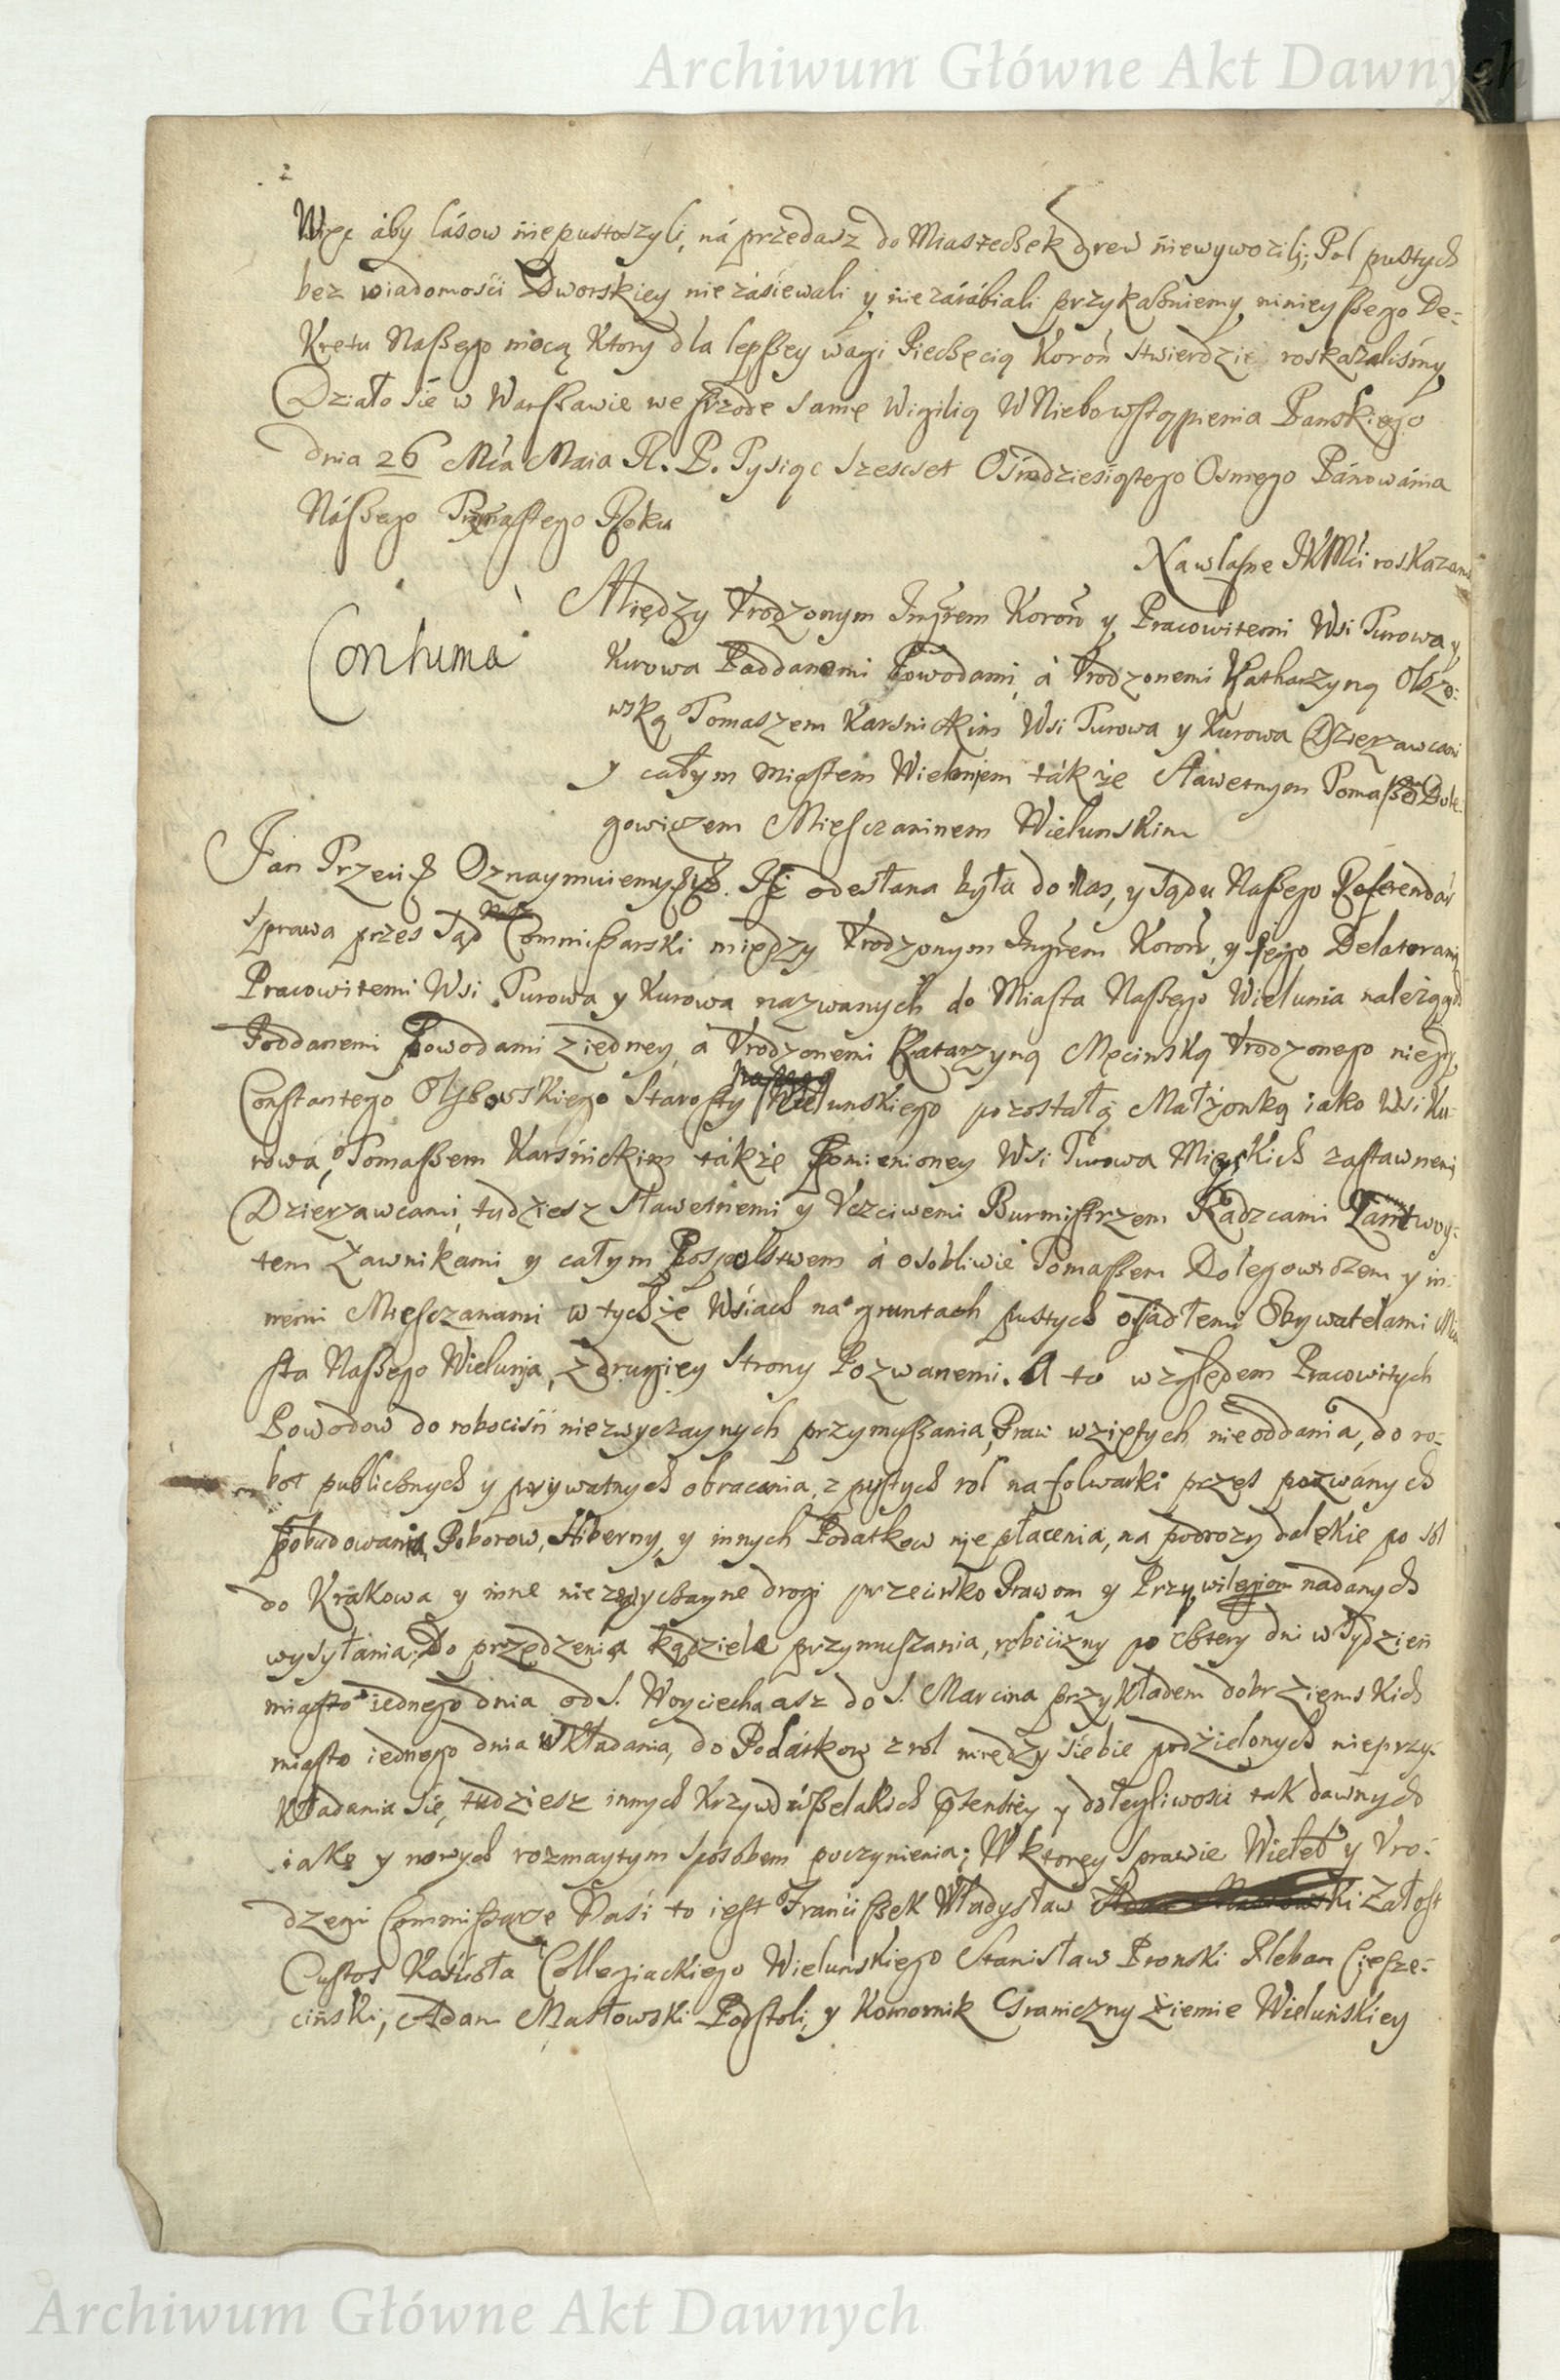 Archiwum Główne Akt Dawnych
2
Więc aby lásow niepustoszyli, ná przedasz do Miasteczek drew niewywozili; Pol pustych
bez wiadomości Dworskiey nie zásiewali y nie zárábiali przykazuiemy ninieyszego De-
kretu Naszego mocą Ktory dla lepszey wagi Pieczęcią Koroñ stwierdzić roskazalismy
Działo się w Warszawie we srzode samę Wigilią WNiebowstąpienia Panskiego
dnia 26 Mca Maia R. P. Tysiąc szescset Osmdziesiątego Osmego Pánowánia
Nászego Roku
Nawłasne JKMći roskazanie
Contuma
Między Vrodzonym Insgrem Koroñ y Pracowitemi Wsi Turowa y
Kurowa Poddanemi Powodami, á Vrodzonemi Katharzyną Olszo-
wską Tomaszem Karsnickim Wsi Turowa y Kurowa Dzierzawcami
y całym miastem Wieluniem tákże sławetnym Tomaszem Dołe-
gowiczem Miesczaninem Wielunskim
Jan Trzeci Oznaymuiemy Iż odesłana była do Nas, y sądu Naszego Referendar
sprawa przes Sąd Nasz Commissarski między Vrodzonym Insgrem Koroñ, y iego Delatorami
Pracowitemi Wsi Turowa y Kurowa nazwanych do Miasta Naszego Wielunia należących
Poddanemi Powodami ziedney, á Vrodzonemi Katarzyną Męcinską Vrodzonego niegdy
Constantego Starosty naszego Wielunskiego pozostałą Małżonką iako Wsi Ku-
rowa, Tomaszem Karśnickim tákże Pomienioney Wsi Turowa Mieyskich zastawnemi
Dzierzawcami, tudziesz sławetnemi y Vczciwemi Burmistrzem Radzcami Lantwoy-
tem Ławnikami y całym Pospolstwem á osobliwie Tomaszem Dołegowiczem y in-
nemi Miesczanami w tychże Wsiach na gruntach pustych osiadłemi Obywatelami Mia
sta Naszego Wielunia, z drugiey strony Pozwanemi. A to względem Pracowitych
Powodow do robocisn niezwyczaynych przymuszania, Praw wziętych nieoddania, do ro-
bot publicznych y prywatnych obracania, z pustych rol na folwarki przes pozwánych
pobudowania, Poborow, Hiberny, y innych Podatkow nie płacenia, na podrozy dalekie po sol
do Krákowa y inne niezwyczayne drogi przeciwko Prawom y Przywilegiom nadanych
wysyłánia, Do przędzenia kądziele przymuszania, robocizny po cztery dni w Tydzień
miasto iednego dnia od S. Woyciecha asz do S. Marcina przykładem dobr ziemskich
miasto iednego dnia wkładania, do Podatkow z rol między siebie podzielonych nieprzy-
kładania się, tudziesz innych krzywd y dolegliwosci tak dawnych
iako y nowych rozmaytym sposobem poczynienia; W ktorey sprawie Wieleb y Vro-
dzeni Commissarze Nasi to iest Franciszek Władysław Załost
Custos Kościoła Collegiackiego Wielunskiego Stanisław Pronski Pleban Ciesze-
ciński, Adam Masłowski Podstoli, y Komornik Graniczny Ziemie Wieluńskiey
Archiwum Główne Akt Dawnych